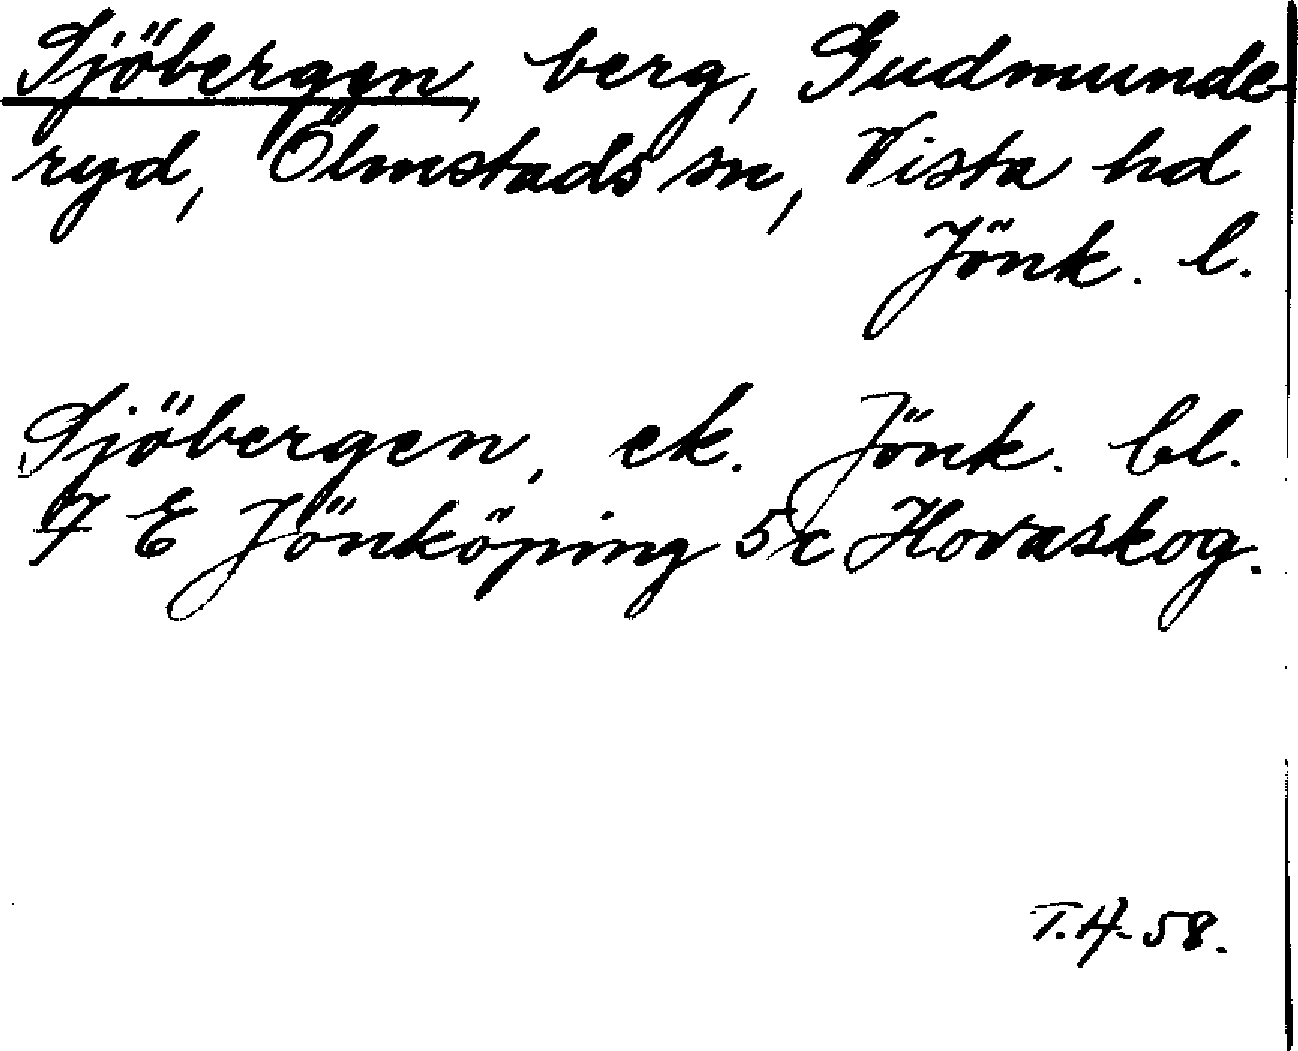 Sjöbergen, berg, Gudmunde-
ryd, Ölmstads sn, Vista hd
Jönk. l.
Sjöbergen, ek. Jönk. bl.
7 E Jönköping 5c Hovaskog.
T.H. 58.